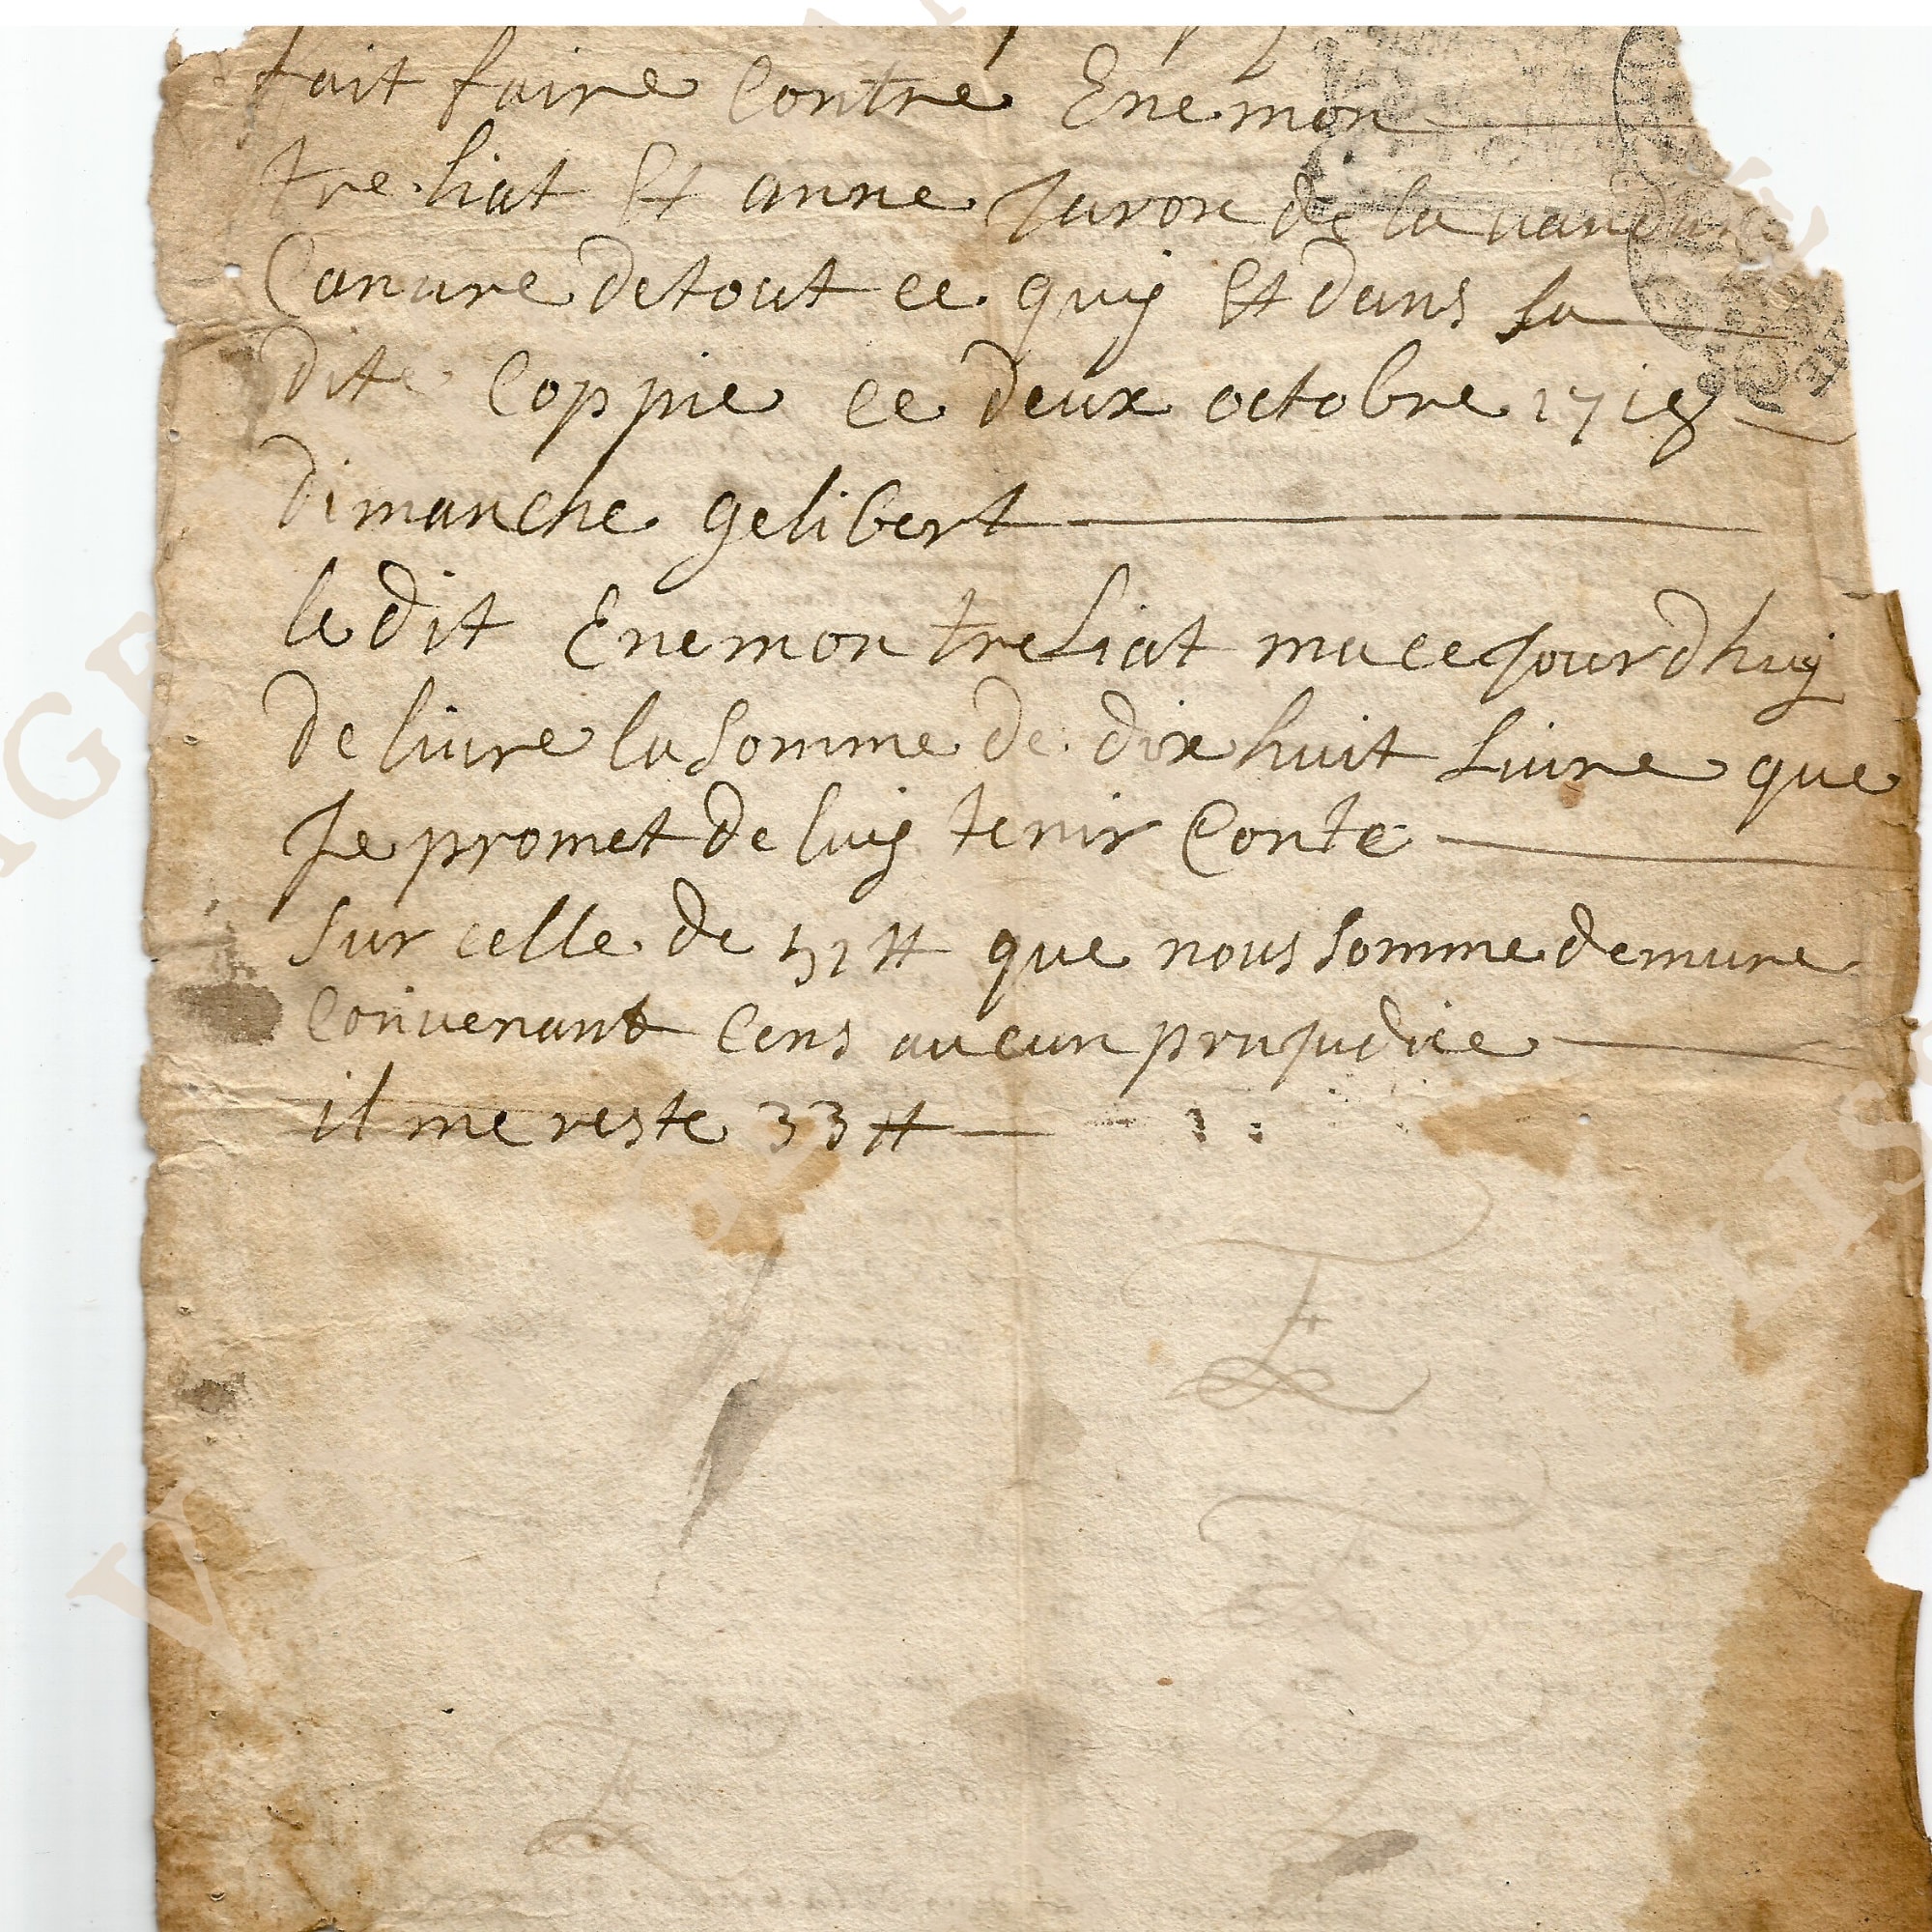 fait faire Contre Enemon
treliat Et anne Juron de la
Canure de tout ce quij Et dans sa
dite Coppie ce deux octobre 1718
dimanche gelibert
le dit Enemon treLiat ma ce Jourdhuij
de livre la somme de dix huit Livre que
Je promet de luij tenir Conte
sur celle de 51 ₶ que nous somme demure
Convenant Cens aucun prujudice
il me reste 33 ₶